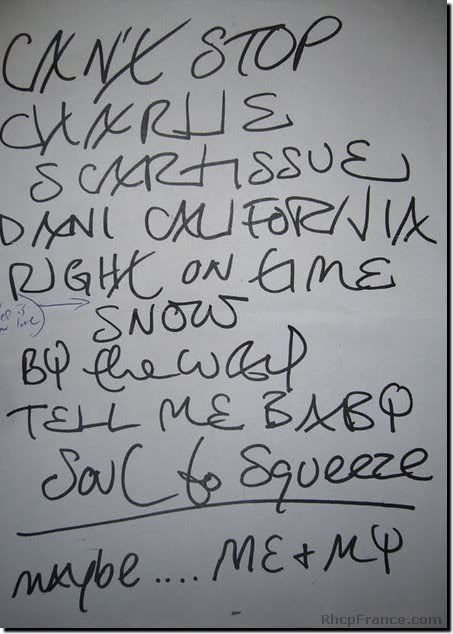 CAN'T STOP
CHARLIE
SCARTISSUE
DANI CALIFORNIA
RIGHT ON TIME
SNOW
BY the WAY
TELL ME BABY
Soul to Squeeze
maybe .... ME + MY
RhcpFrance.com